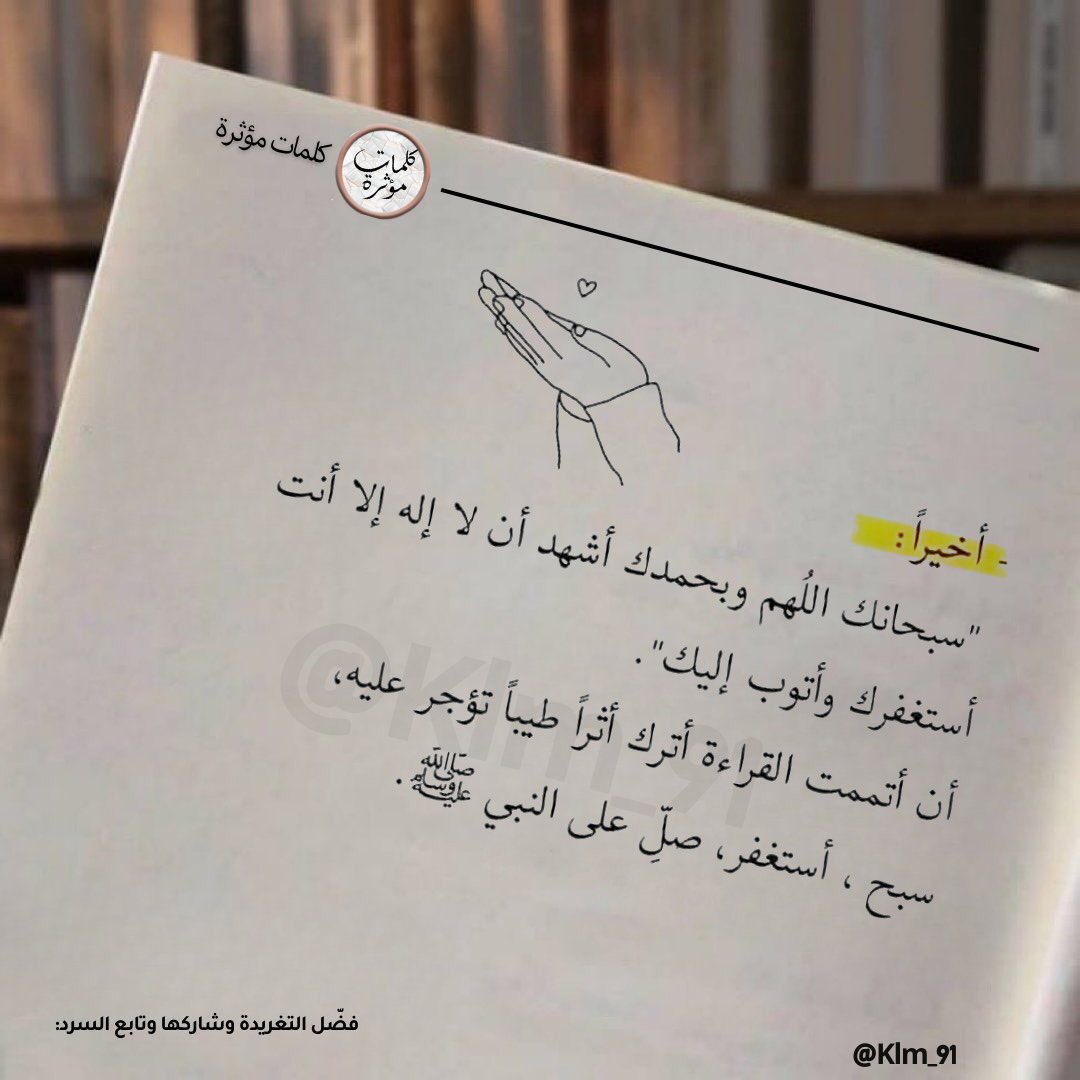 كلمات مؤثرة
كلمات
مؤثرة
- أخيراً :
"سبحانك اللُهم وبحمدك أشهد أن لا إله إلا أنت
أستغفرك وأتوب إليك".
أن أتممت القراءة أترك أثراً طيباً تؤجر عليه،
سبح ، أستغفر، صلِّ على النبي ﷺ.
@Klm_91
فضّل التغريدة وشاركها وتابع السرد:
@Klm_91